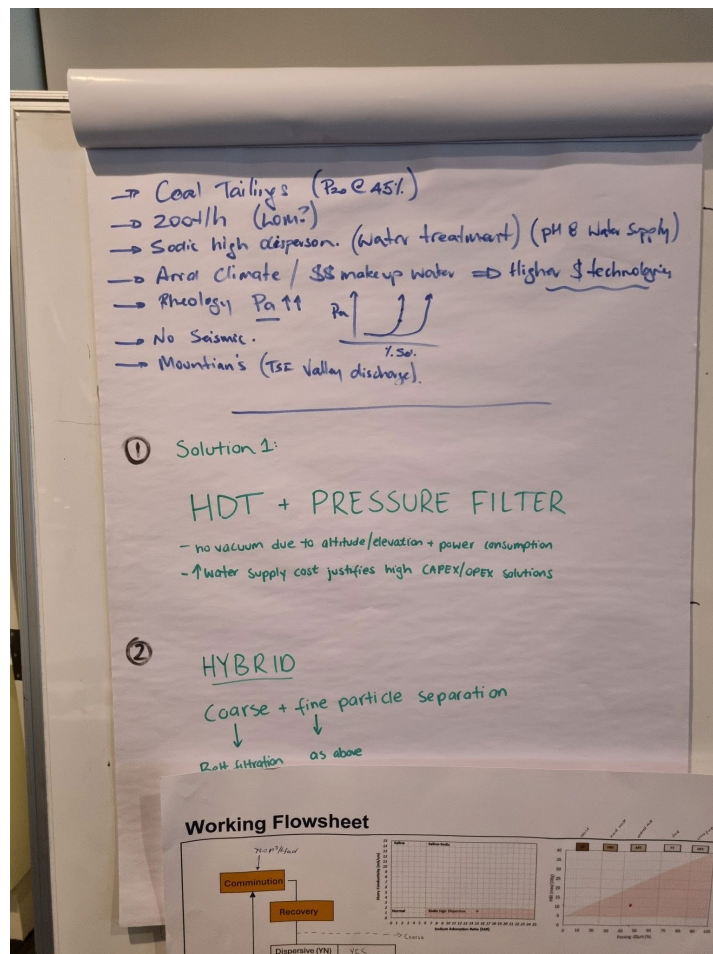 → Coal Tailings (P20 @ 45%)
→ 200t/h (LOM?)
→ Sodic high dispersion. (Water treatment) (pH 8 Water Supply)
→ Arral Climate / $$ makeup water ⇒ Higher $ technologies
→ Rheology Pa ↑↑
Pa
% Sol.
→ No Seismic.
→ Mountian's (TSF Valley discharge).
① Solution 1:
HDT + PRESSURE FILTER
- no vacuum due to altitude/elevation + power consumption
- ↑ Water supply cost justifies high CAPEX/OPEX solutions
② HYBRID
Coarse + fine particle separation
↓ ↓
Belt filtration as above
Working Flowsheet
Comminution
Recovery
Coarse
Dispersive (YN) YES
Saline
Saline-Sodic
Normal
Sodic High Dispersion
Sodium Adsorption Ratio (SAR)
Passing 20µm (%)